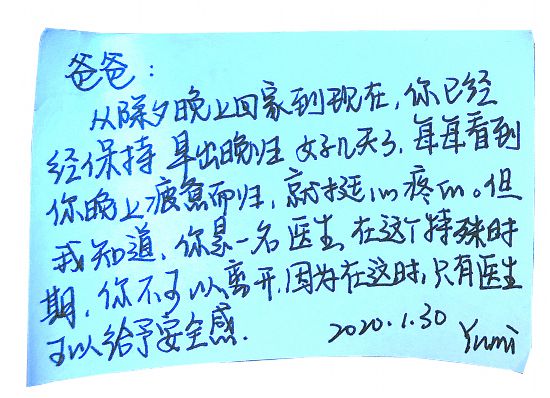 爸爸：
从除夕晚上回家到现在，你已经
经保持早出晚归好几天了，每每看到
你晚上疲惫而归，就挺心疼的。但
我知道，你是一名医生，在这个特殊时
期，你不可以离开，因为在这时，只有医生
可以给予安全感.
2020.1.30
Yumi